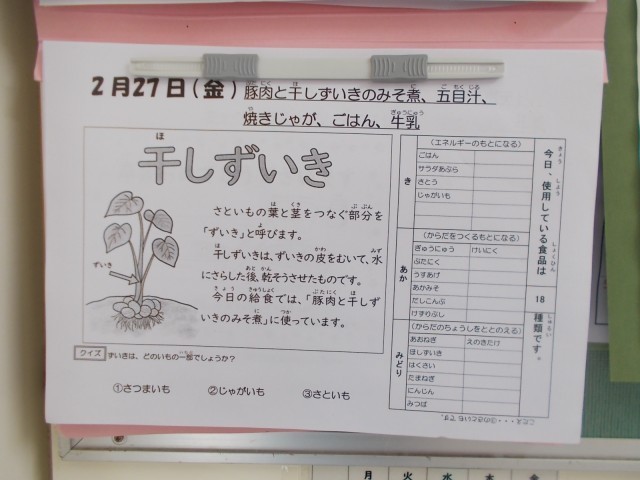 2月27日(金) 豚肉と干しずいきのみそ煮、五目汁、
焼きじゃが、ごはん、牛乳
干しずいき
さといもの葉と茎をつなぐ部分を
「ずいき」と呼びます。
干しずいきは、ずいきの皮をおいて、水
にさらした後、乾そうさせたものです。
今日の給食では、「豚肉と干しず
いきのみそ煮」に使っています。
ずいき
クイズ ずいきは、どのいもの一部でしょうか?
①さつまいも ②じゃがいも ③さといも
今日、使用している食品は
18
種類です。
き
(エネルギーのもとになる)
ごはん
サラダあぶら
さとう
じゃがいも
あか
(からだをつくるもとになる)
ぎゅうにゅう けいにく
ぶたにく
うすあげ
あかみそ
だしこんぶ
けずりぶし
みどり
(からだのちょうしをととのえる)
あおねぎ えのきたけ
ほしずいき
はくさい
たまねぎ
にんじん
みつば
こたえ・・・③のさといも です。
月 火 水 木 金